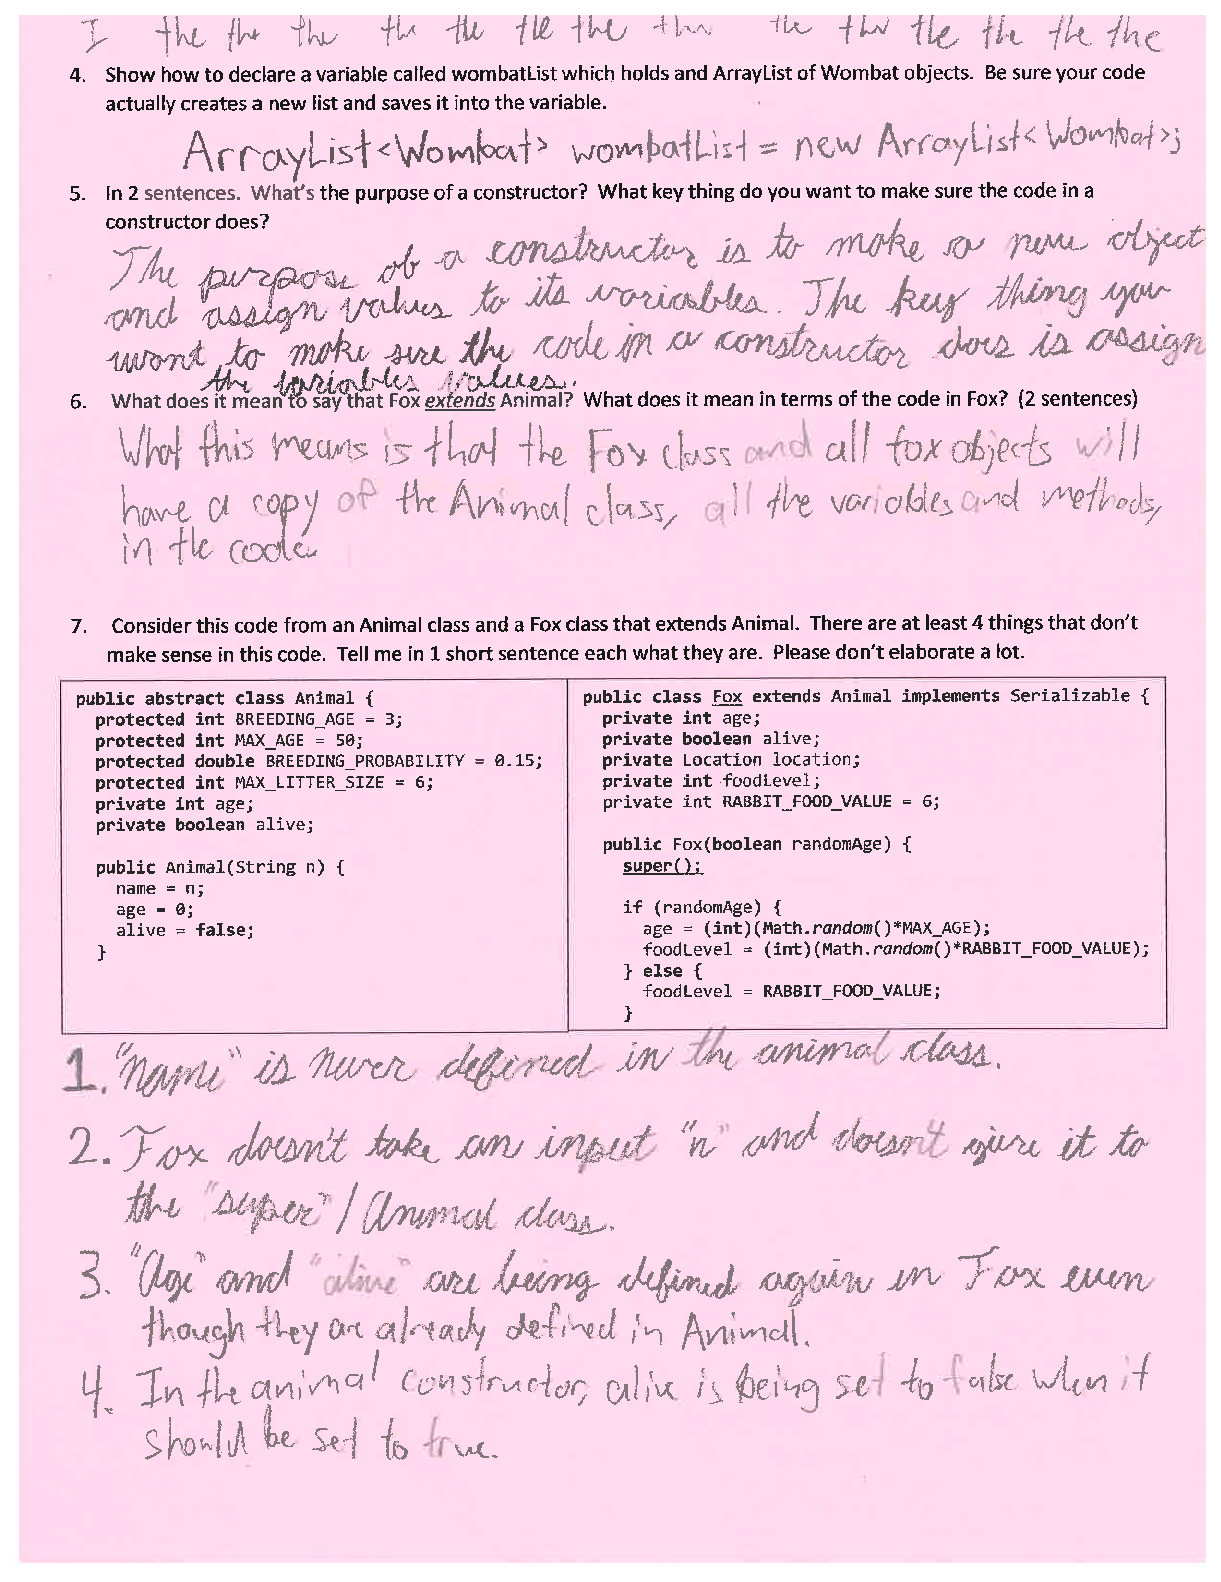 I the the the the the the the the the the the the the the
4. Show how to declare a variable called wombatList which holds and ArrayList of Wombat objects. Be sure your code
actually creates a new list and saves it into the variable.
ArrayList<Wombat> wombatList = new ArrayList<Wombat>;
5. In 2 sentences. What's the purpose of a constructor? What key thing do you want to make sure the code in a
constructor does?
The purpose of a constructor is to make a new object
and assign values to its variables. The key thing you
want to make sure the code in a constructor does is assign
the variables values.
6. What does it mean to say that Fox extends Animal? What does it mean in terms of the code in Fox? (2 sentences)
What this means is that the Fox class and all fox objects will
have a copy of the Animal class, all the variables and methods,
in the code.
7. Consider this code from an Animal class and a Fox class that extends Animal. There are at least 4 things that don't
make sense in this code. Tell me in 1 short sentence each what they are. Please don't elaborate a lot.
public abstract class Animal {
protected int BREEDING_AGE = 3;
protected int MAX_AGE = 50;
protected double BREEDING_PROBABILITY = 0.15;
protected int MAX_LITTER_SIZE = 6;
private int age;
private boolean alive;
public Animal(String n) {
name = n;
age = 0;
alive = false;
}
public class Fox extends Animal implements Serializable {
private int age;
private boolean alive;
private Location location;
private int foodLevel;
private int RABBIT_FOOD_VALUE = 6;
public Fox(boolean randomAge) {
super();
if (randomAge) {
age = (int)(Math.random()*MAX_AGE);
foodLevel = (int)(Math.random()*RABBIT_FOOD_VALUE);
} else {
foodLevel = RABBIT_FOOD_VALUE;
}
1. "name" is never defined in the animal class.
2. Fox doesn't take an input "n" and doesn't give it to
the "super"/Animal class.
3. "Age" and "alive" are being defined again in Fox even
though they are already defined in Animal.
4. In the animal constructor, alive is being set to false when it
should be set to true.